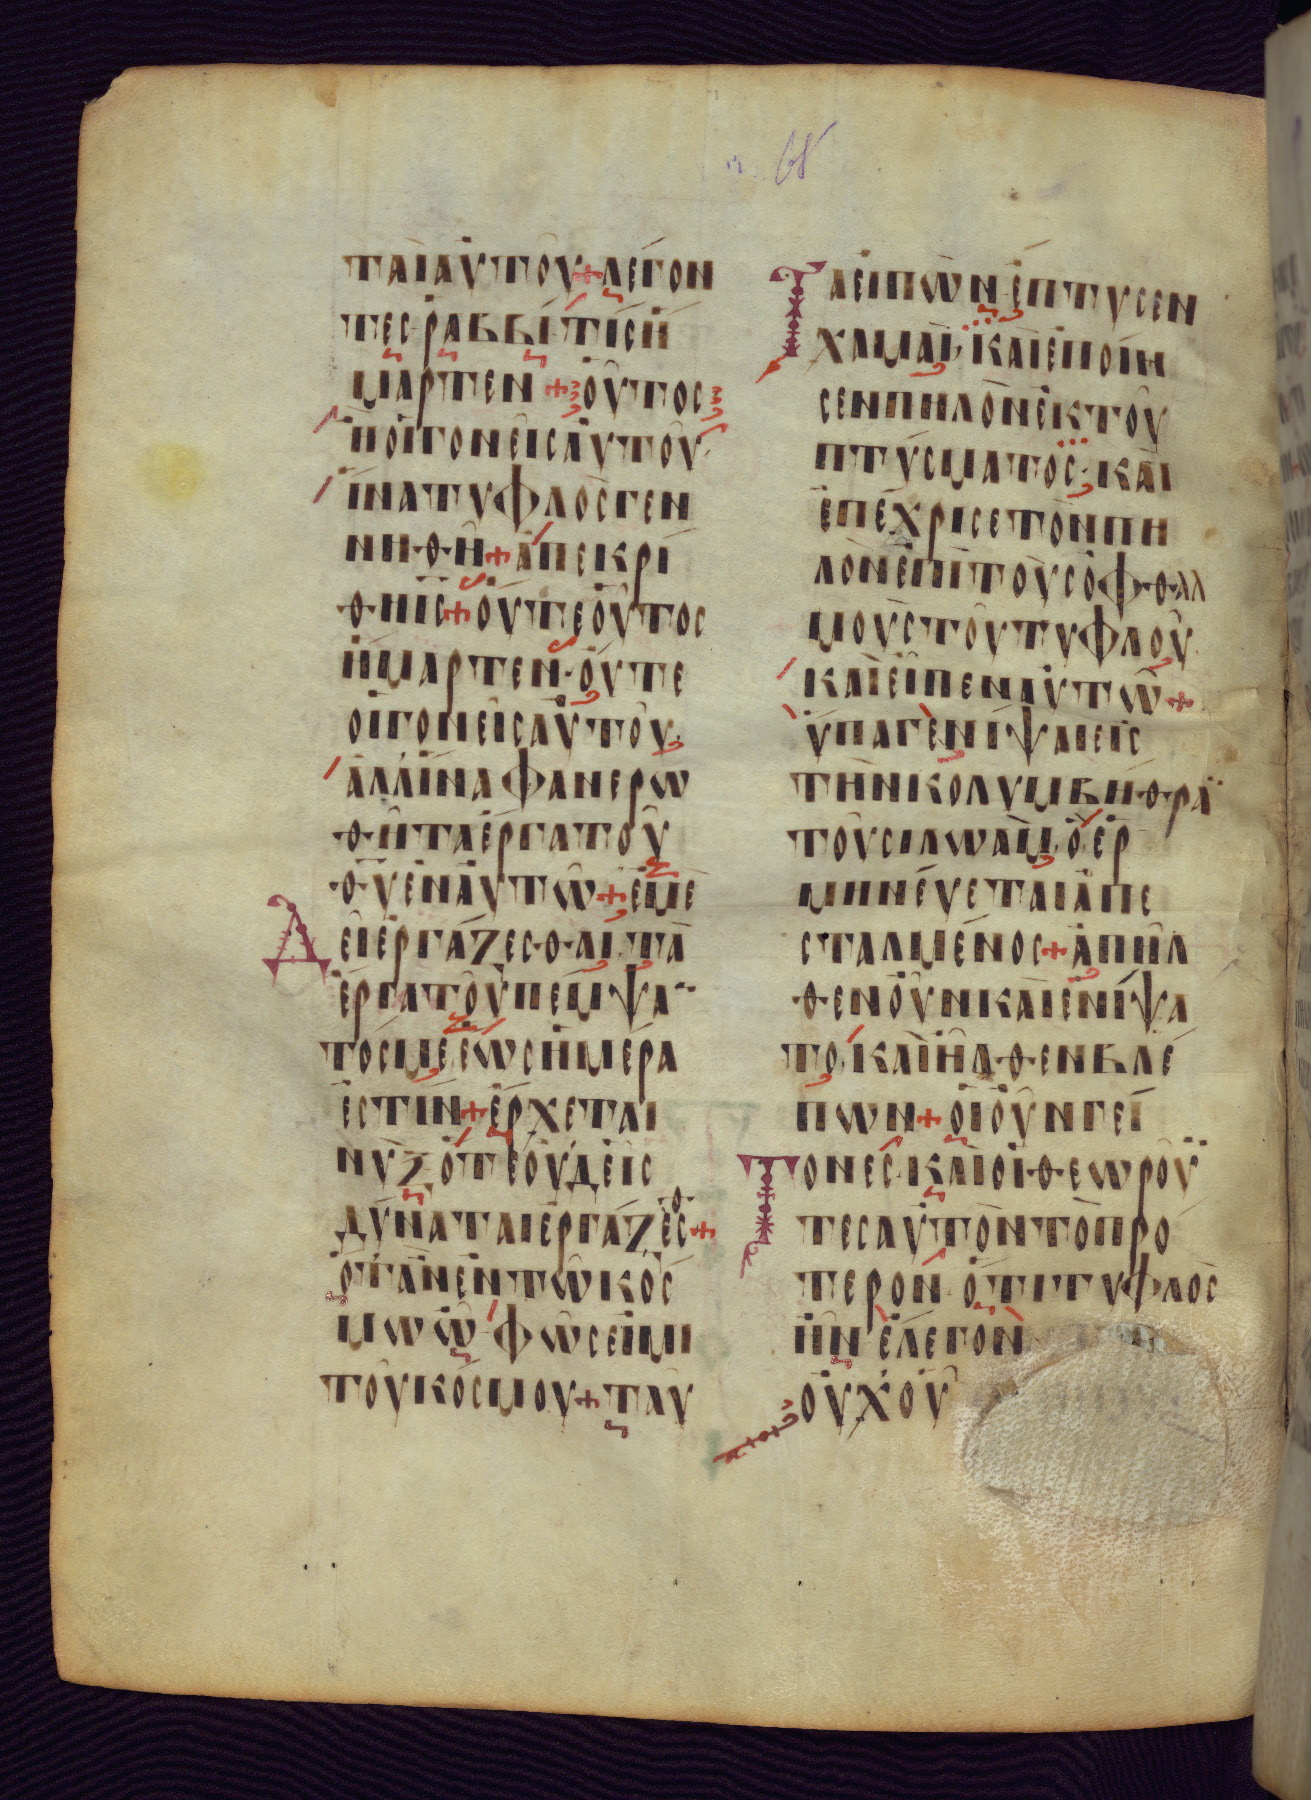 68
ΤΑΙΑΥΤΟΥ+ΛΕΓΟΝ
ΤΕΣ·ΡΑΒΒΙ·ΤΙΣΗ
ΜΑΡΤΕΝ+ΟΥΤΟΣ
ΗΟΙΓΟΝΕΙΣΑΥΤΟΥ·
ΙΝΑΤΥΦΛΟΣΓΕΝ
ΝΗΘΗ+ΑΠΕΚΡΙ
ΘΗΙΣ+ΟΥΤΕΟΥΤΟΣ
ΗΜΑΡΤΕΝ·ΟΥΤΕ
ΟΙΓΟΝΕΙΣΑΥΤΟΥ·
ΑΛΛΙΝΑΦΑΝΕΡΩ
ΘΗΤΑΕΡΓΑΤΟΥ
ΘΥΕΝΑΥΤΩ+ΕΜΕ
ΔΕΙΕΡΓΑΖΕΣΘΑΙ·ΤΑ
ΕΡΓΑΤΟΥΠΕΜΨΑ
ΤΟΣΜΕ·ΕΩΣΗΜΕΡΑ
ΕΣΤΙΝ+ΕΡΧΕΤΑΙ
ΝΥΞΟΤΕΟΥΔΕΙΣ
ΔΥΝΑΤΑΙΕΡΓΑΖΕΣΘ+
ΟΤΑΝΕΝΤΩΚΟΣ
ΜΩΩ·ΦΩΣΕΙΜΙ
ΤΟΥΚΟΣΜΟΥ+ΤΑΥ
ΤΑΕΙΠΩΝ·ΕΠΤΥΣΕΝ
ΧΑΜΑΙ·ΚΑΙΕΠΟΙΗ
ΣΕΝΠΗΛΟΝΕΚΤΟΥ
ΠΤΥΣΜΑΤΟΣ·ΚΑΙ
ΕΠΕΧΡΙΣΕΤΟΝΠΗ
ΛΟΝΕΠΙΤΟΥΣΟΦΘΑΛ
ΜΟΥΣΤΟΥΤΥΦΛΟΥ·
ΚΑΙΕΙΠΕΝΑΥΤΩ+
ΥΠΑΓΕΝΙΨΑΙΕΙΣ
ΤΗΝΚΟΛΥΜΒΗΘΡΑ
ΤΟΥΣΙΛΩΑΜ·ΟΕΡ
ΜΗΝΕΥΕΤΑΙΑΠΕ
ΣΤΑΛΜΕΝΟΣ+ΑΠΗΛ
ΘΕΝΟΥΝΚΑΙΕΝΙΨΑ
ΤΟ·ΚΑΙΗΛΘΕΝΒΛΕ
ΠΩΝ+ΟΙΟΥΝΓΕΙ
ΤΟΝΕΣ·ΚΑΙΟΙΘΕΩΡΟΥ
ΤΕΣΑΥΤΟΝΤΟΠΡΟ
ΤΕΡΟΝ·ΟΤΙΤΥΦΛΟΣ
ΗΝ·ΕΛΕΓΟΝ
ΟΥΧΟΥ